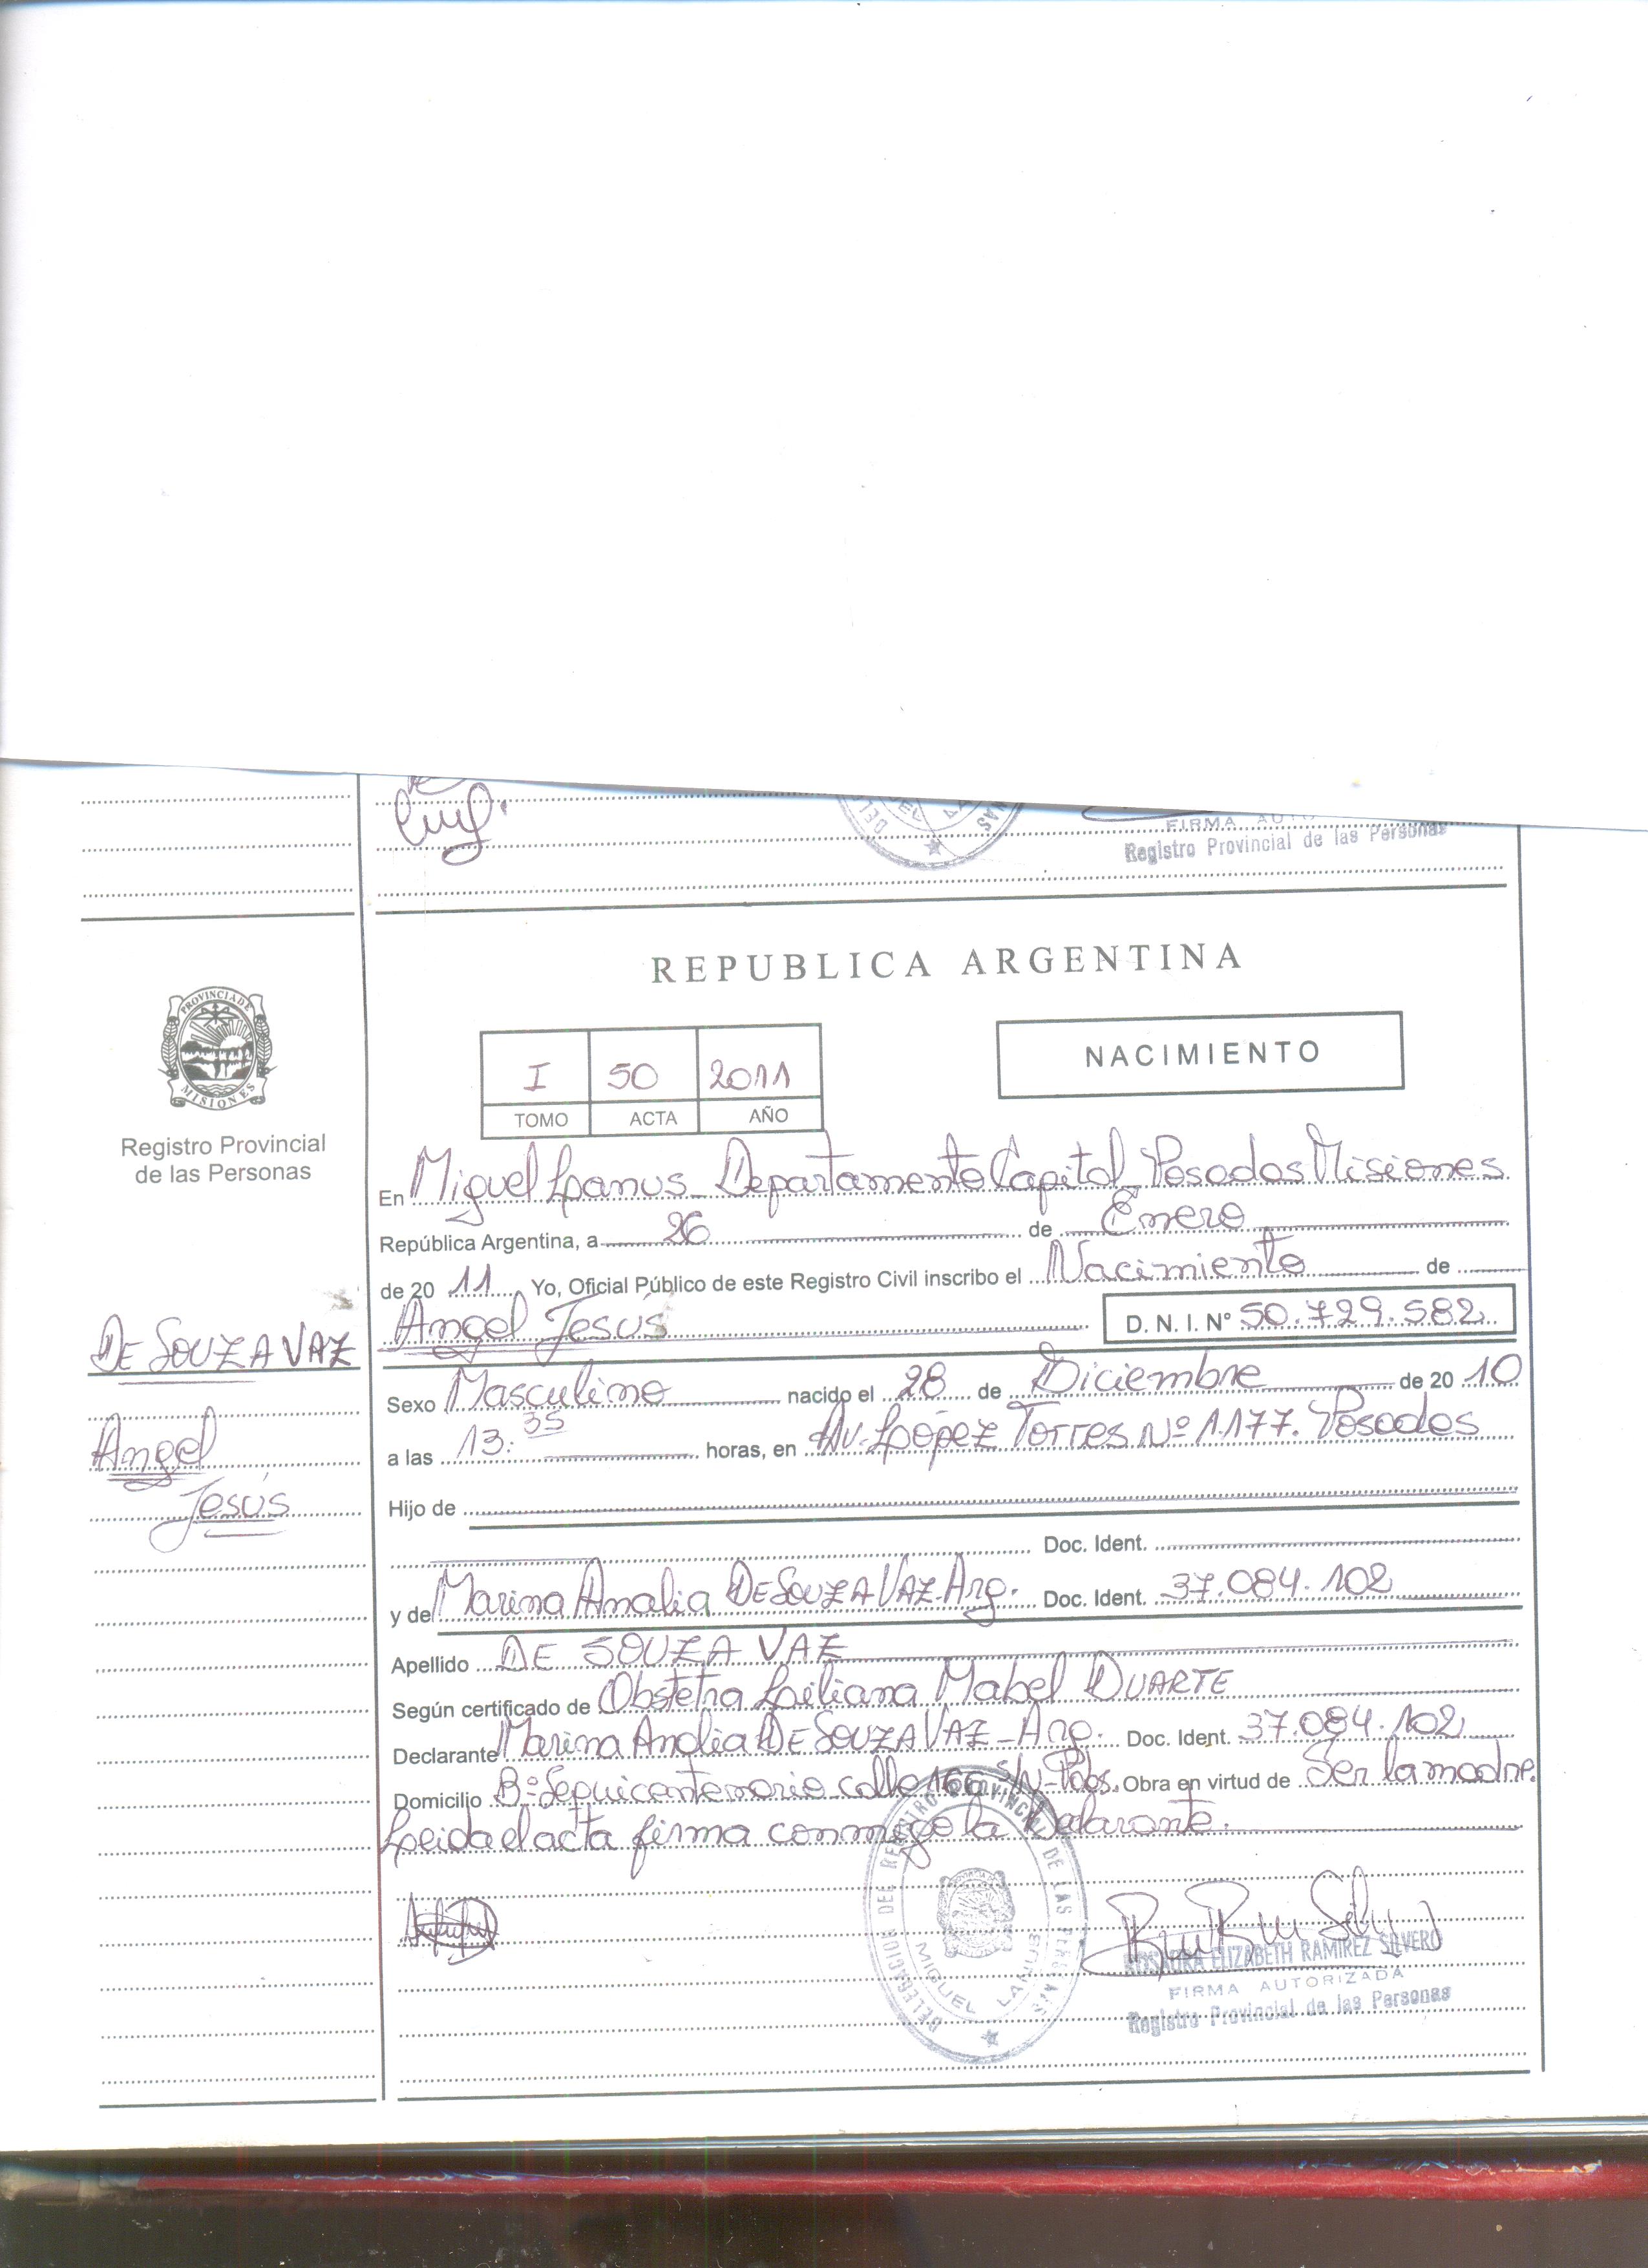 FIRMA AU
Registro Provincial de las Personas
REPUBLICA ARGENTINA
PROVINCIA DE
MISIONES
Registro Provincial
de las Personas
I 50 2011
TOMO ACTA AÑO
NACIMIENTO
En Miguel Lanus - Departamento Capital - Posadas Misiones
República Argentina, a 26 de Enero
de 20 11 Yo, Oficial Público de este Registro Civil inscribo el Nacimiento de
Angel Jesús D. N. I. Nº 50.729.582
DE SOUZA VAZ
Angel
Jesús
Sexo Masculino nacido el 28 de Diciembre de 20 10
a las 13:35 horas, en Av. López Torres Nº 1177. Posadas
Hijo de
Doc. Ident.
y de Marina Amalia DE SOUZA VAZ - Arg. Doc. Ident. 37.084.102
Apellido DE SOUZA VAZ
Según certificado de Obstetra Liliana Mabel DUARTE
Declarante Marina Analia DE SOUZA VAZ - Arg. Doc. Ident. 37.084.102
Domicilio Bº Sequicentenario calle 166 S/N - Pdas. Obra en virtud de Ser la madre.
Leida el acta firma conmigo la Declarante.
DELEGACION DEL REGISTRO PROVINCIAL DE LAS PERSONAS
MIGUEL LANUS
ROSAURA ELIZABETH RAMIREZ SILVERO
FIRMA AUTORIZADA
Registro Provincial de las Personas